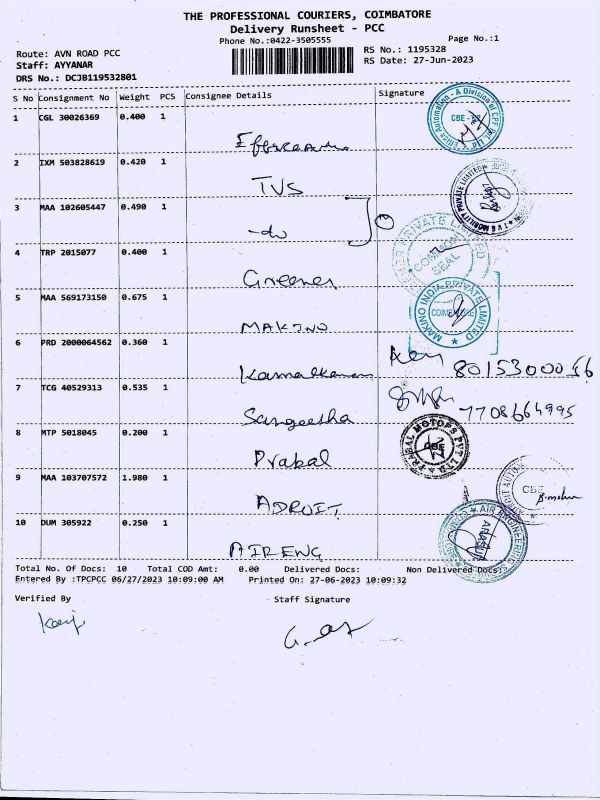 THE PROFESSIONAL COURIERS, COIMBATORE
Delivery Runsheet - PCC
Phone No.:0422-3505555
Page No.:1
Route: AVN ROAD PCC
RS No.: 1195328
Staff: AYYANAR
RS Date: 27-Jun-2023
DRS No.: DCJB119532801
S No Consignment No Weight PCS Consignee Details Signature
1 CGL 30026369 0.400 1
2 IXM 503828619 0.420 1 TVS
3 MAA 102605447 0.490 1 -do
4 TRP 2015077 0.400 1 Greener
COMMON SEAL
5 MAA 569173150 0.675 1 MAKINO
MAKINO INDIA PRIVATE LIMITED
6 PRD 2000064562 0.360 1
7 TCG 40529313 0.535 1 Sangeetha 7708664995
8 MTP 5018045 0.200 1 Prabal
PRABAL MOTORS PVT LTD CBE
9 MAA 103707572 1.980 1 ADROIT
CBE
10 DUM 305922 0.250 1 AIRENG
AIR ENGINEERING
Total No. Of Docs: 10 Total COD Amt: 0.00 Delivered Docs: Non Delivered Docs:
Entered By :TPCPCC 06/27/2023 10:09:00 AM Printed On: 27-06-2023 10:09:32
Verified By Staff Signature